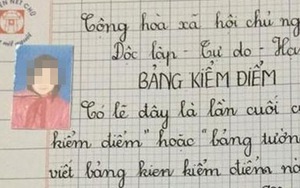 Cộng hoà xã hội chủ ng
Độc lập - Tự do - Hạ
BẢNG KIỂM ĐIỂM
Có lẽ đây là lần cuối c
kiểm điểm" hoặc "bảng tườn
viết bảng kien kiểm điểm nà